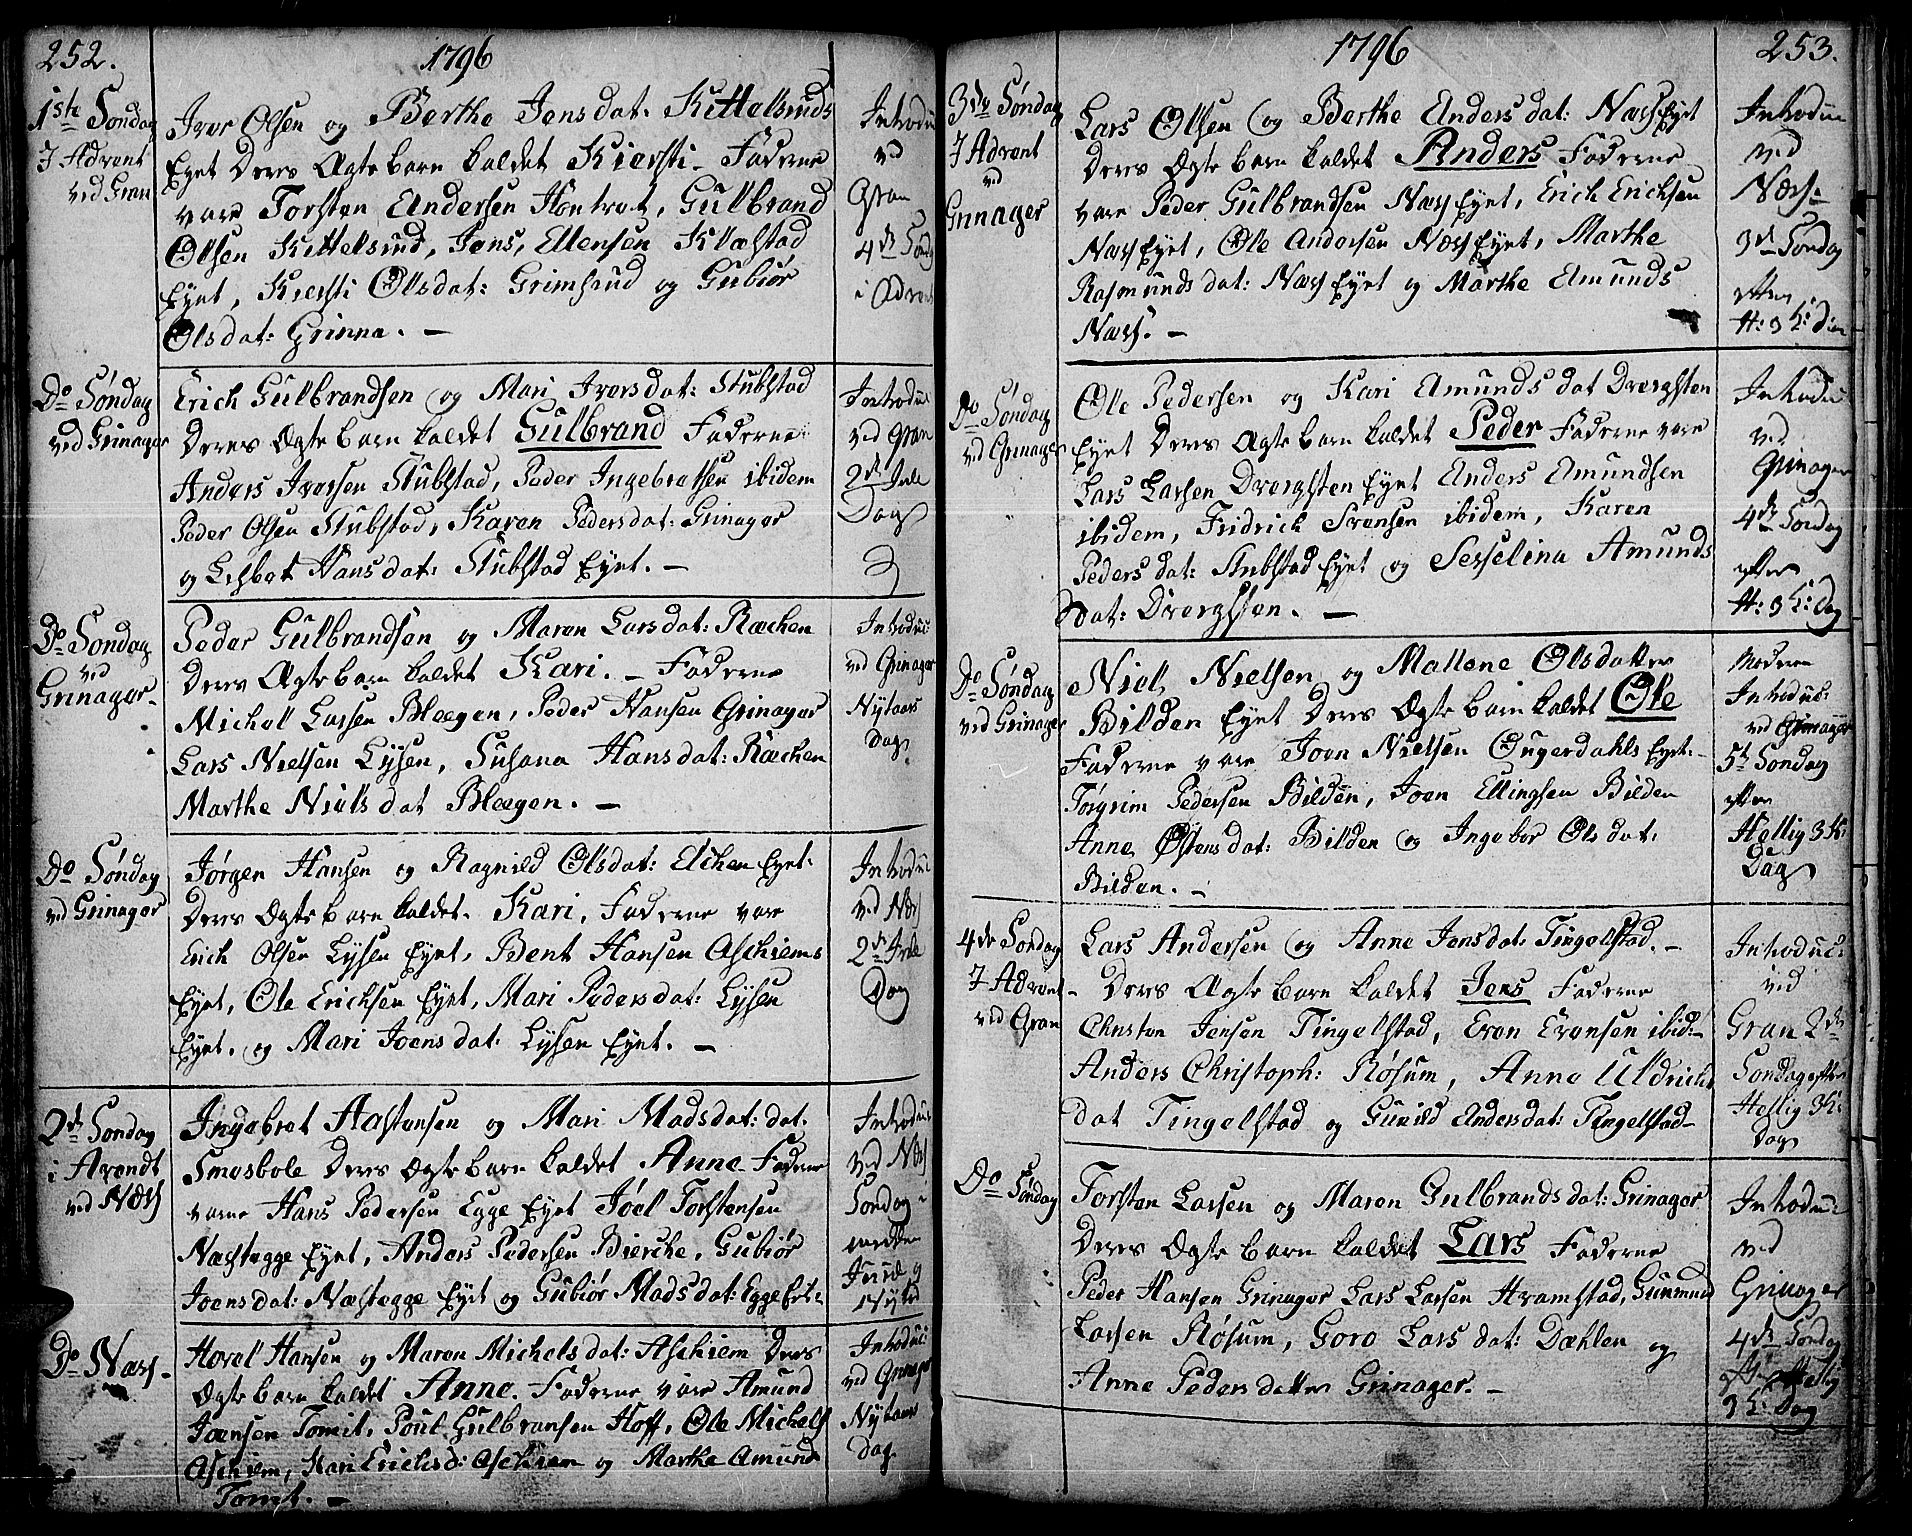 252. 1796
1ste Søndag
I Advent
ved Gran
Iver Olsen og Berthe Jensdat: Kittelsruds
Eyet Deres Ægte barn kaldet Kiersti – Fadderne
vare Torsten Andersen Hontrot, Gulbrand
Olsen Kittelsrud, Jens Ellensen Klæstad
Eyet, Kiersti Olsdat: Grimsrud og Gubiør
Olsdat: Grinna. –
Introdu:
ved
Gran
4de Søndag
i Advent
Do Søndag
ved Grinager
Erich Gulbrandsen og Mari Iversdat: Stubstad
Deres Ægte barn kaldet Gulbrand Fadderne
Anders Iversen Stubstad, Peder Ingebretsen ibidem
Peder Olsen Stubstad, Karen Pedersdat: Grinager
og Lisbet Hansdat: Stubstad Eyet. –
Introdu:
ved Gran
2de Jule
Dag
Do Søndag
ved
Grinager.
Peder Gulbrandsen og Maren Larsdat: Ræchen
Deres Ægte barn kaldet Kari. – Fadderne
Michel Larsen Bleegen, Peder Hansen Grinager
Lars Nielsen Lysen, Susana Hansdat: Ræchen
Marthe Nielsdat Bleegen. –
Introdu:
ved Grinager
Nytaars
Dag.
Do Søndag
ved Grinager
Jørgen Hansen og Ragnild Olsdat: Elchen Eyet.
Deres Ægte barn kaldet Kari, Fadderne vare
Erich Olsen Lysen Eyet, Bent Hansen Aschiems
Eyet, Ole Erichsen Eyet, Mari Pedersdat: Lysen
Eyet, og Mari Joensdat: Lysen Eyet. –
Introdu:
ved Næs
2de Jule
Dag
2de Søndag
i Avendt
ved Næss
Ingebret Hastensen og Mari Madsdat: dat.
Smosbøle Deres Ægte barn kaldet Anne Fadderne
vare Hans Pedersen Egge Eyet Joel Torstensen
Næstegge Eyet, Anders Pedersen Bierche, Gubiør
Joensdat: Næstegge Eyet og Gubiør Madsdat: Egge Eyet
Introdu:
ved Næs
Søndag
mellem
Juul og
Nytr
Do Næss.
Hovel Hansen og Maren Michelsdat: Aschiem Deres
Ægte barn kaldet Anne. Fadderne vare Amund
Joensen Tomit, Poul Gulbransen Hoff, Ole Michels
Aschiem, Kari Erichsd: Aschiem og Marthe Amunds
Tomt. –
Introdu:
ved Grinager
Nytaars
dag
1796 253.
3de Søndag
I Advent
ved
Grinager
Lars Olsen og Berthe Andersdat: NæssEyet
Deres Ægte barn kaldet Anders Fadderne
vare Peder Gulbrandsen Næss Eyet, Erich Erichsen
Næss Eyet, Ole Andersen Næss Eyet, Marthe
Rasmundsdat: Næss Eyet og Marthe Amunds
Næss. –
Introdu:
ved
Næss
3de Søndag
efter
H: 3 K: Dag
Do Søndag
ved Grinager
Ole Pedersen og Kari Amundsdat Dvergsten
Eyet Deres Ægte barn kaldet Peder Fadderne vare
Lars Larsen Dvergsten Eyet Anders Amundsen
ibidem, Fridrich Svensen ibidem, Karen
Pedersdat: Stubstad Eyet og Sesselina Amunds
dat: Dvergsten. –
Introdu:
ved
Grinager
4de Søndag
efter
H: 3 K: Dag
Do Søndag
ved Grinager
Niels Nielsen og Mallene Olsdatter
Bilden Eyet Deres Ægte barn kaldet Ole
Fadderne vare Joen Nielsen Gugerdahls Eyet.
Torgrim Pedersen Bilden, Joen Ellingsen Bilden
Anne Østensdat: Bilden og Ingebor Olsdat:
Bilden. –
Moderen
Introdub:
ved Grinager
5te Søndag
efter
Hellig 3 K:
Dag
4de Søndag
I Advent
ved Gran
Lars Andersen og Anne Jensdat: Tingelstad. –
Deres Ægte barn kaldet Jens Fadderne
Christen Jensen Tingelstad, Even Evensen ibid:
Anders Christoph: Røsum, Anne Uldrichs
dat Tingelstad og Gunild Andersdat: Tingelstad
Introduc:
vid
Gran 2de
Søndag efter
Hellig 3 K:
Dag
Do Søndag
Torsten Larsen og Maren Gulbrandsdat: Grinager
Deres Ægte barn kaldet Lars Fadderne
Peder Hansen Grinager Lars Larsen Framstad, Gunmund
Larsen Røsum, Goro Larsdat: Dæhlen og
Anne Pedersdatter Grinager. –
Introdu:
ved
Grinager
4de Søndag
efter Hellig
3 K: Dag